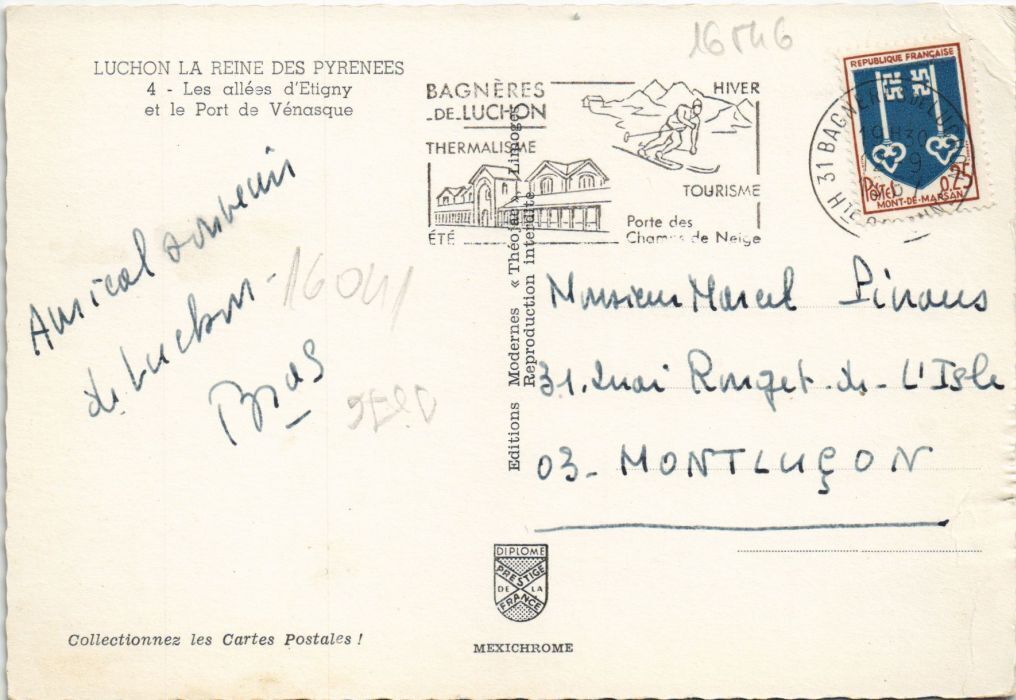 LUCHON LA REINE DES PYRENEES
4 - Les allées d'Etigny
et le Port de Vénasque
16046
BAGNÈRES
-DE-LUCHON
HIVER
THERMALISME
TOURISME
ÉTÉ
Porte des
Champs de Neige
REPUBLIQUE FRANÇAISE
0,25
MONT-DE-MARSAN
31 BAGNERES DE LUCHON
19H30
Amical souvenir
de Luchon -
Bras
16041
Editions Modernes « Théojac », Limoges
Reproduction interdite
Monsieur Marcel
31. Quai Rouget-de-L'Isle
03- MONTLUÇON
DIPLOME
PRESTIGE
DE LA
FRANCE
Collectionnez les Cartes Postales !
MEXICHROME